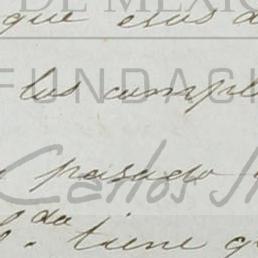 DE MÉXICO
que esos d
FUNDACI
los cumpl
pasado
Carlos Sl
tiene q